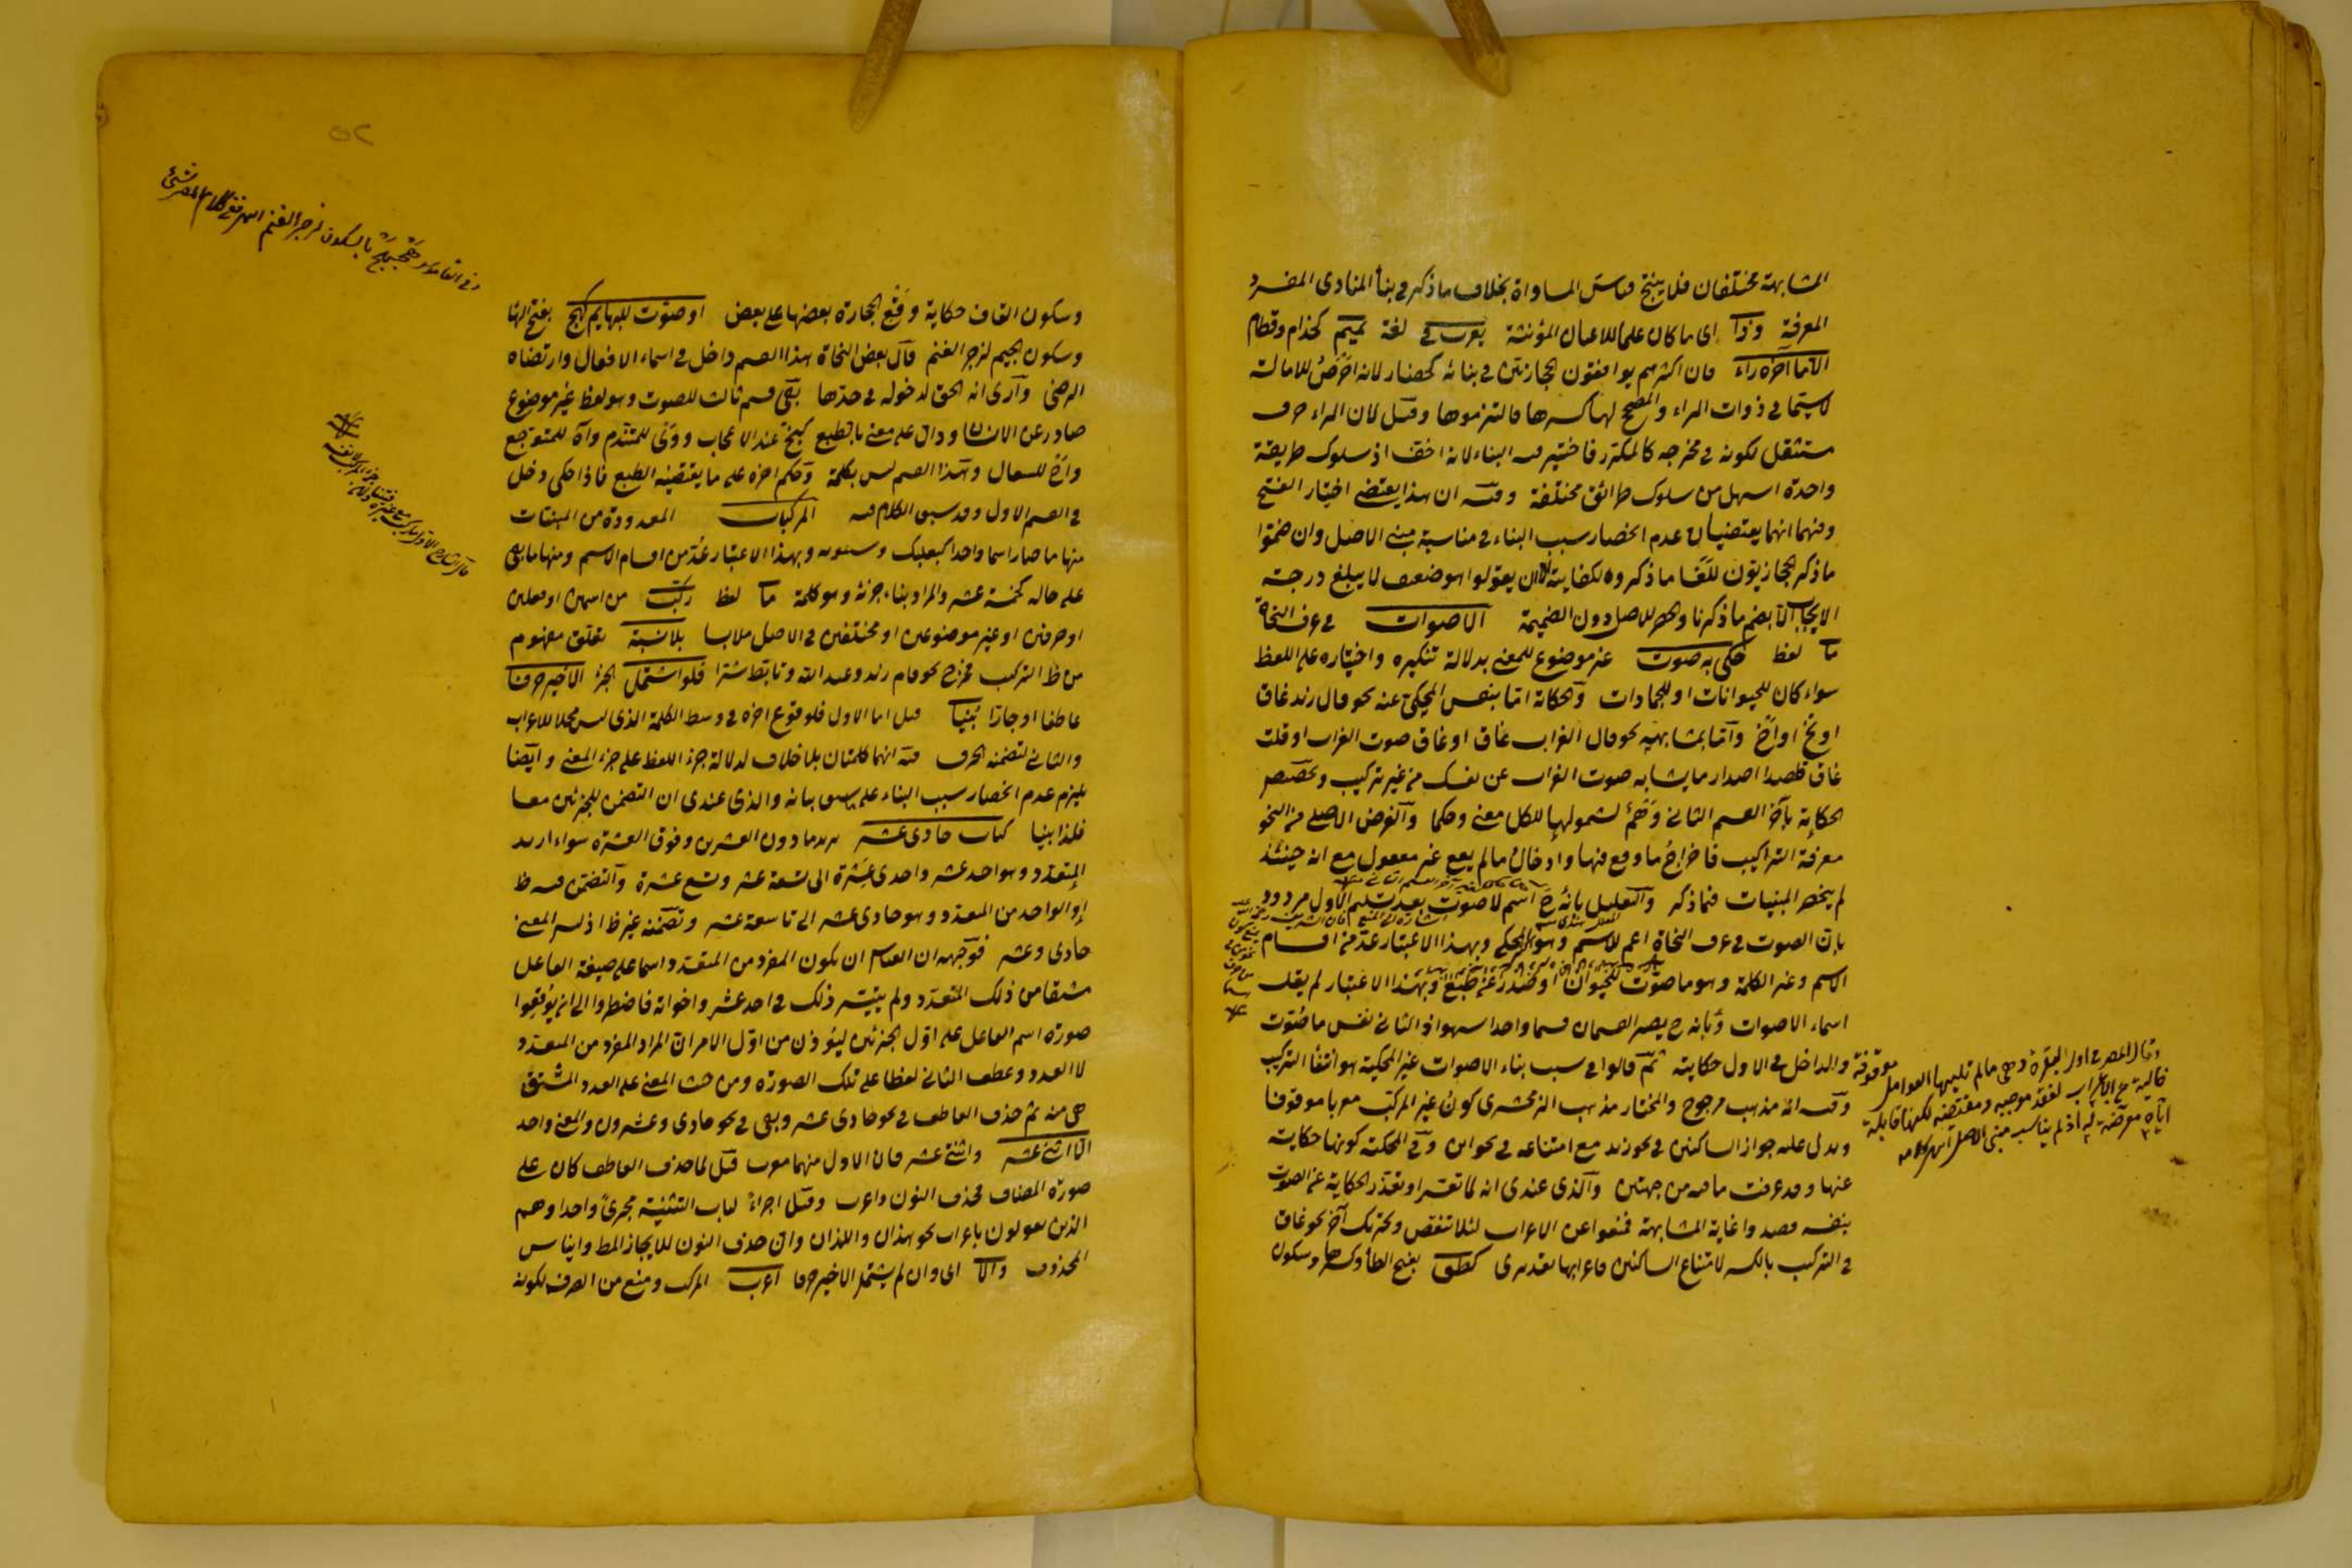 المشابهة مختلفان فلا ينتج قياس المساواة بخلاف ما ذكر في بناء المنادى المفرد
المعرفة وذا اى ما كان علما للاعيان المؤنثة يعرب في لغة تميم كحذام وقطام
الا ما آخره راء فان اكثرهم يوافقون الحجازيين في بنائه كحضار لانه للامالة
لا سيما في ذوات الراء والمصحح لها كسرها فالتزموها وقيل لان الراء حرف
مستثقل لكونه في مخرجه كالمكرر فاختير فيه البناء لانه اخف اذ سلوك طريقة
واحدة اسهل من سلوك طرائق مختلفة وفيه ان هذا يقتضى اختيار الفتح
وفيهما انهما يقتضيان عدم انحصار سبب البناء في مناسبة مبنى الاصل وان ضموا
ما ذكر الحجازيون للغا ما ذكروه لكفايته الا ان يقولوا هو ضعيف لا يبلغ درجة
الايجاب الا بضم ما ذكرنا والحصر للاصل دون الضميمة الاصوات في عرف النحاة
ما لفظ حكى به صوت غير موضوع للمعنى بدلالة تنكيره واختياره على اللفظ
سواء كان للحيوانات او للجمادات والحكاية اما بنفس المحكى عنه نحو قال زيد غاق
او نخ او اخ واما بمشابهه نحو قال الغراب غاق او غاق صوت الغراب او قلت
غاق قصدا اصدار ما يشابه صوت الغراب عن نفسك من غير تركيب وتخصيص
الحكاية بآخر القسم الثاني وهم لشمولها للكل معنى وحكما والغرض الاصلى من النحو
معرفة التراكيب فاخراج ما وقع فيها وادخال ما لم يقع غير معقول مع انه حينئذ
لم ينحصر المبنيات فيما ذكر والتعليل بانه ح اسم لا صوت بعد تسليم الاول مردود
بان الصوت في عرف النحاة اعم للاسم وهو المحكى وبهذا الاعتبار عد من اقسام
الاسم وغير الكلمة وهو ما صوت للحيوان او صدر عن طبع وبهذا الاعتبار لم يقل
اسماء الاصوات وبانه ح يصير القسمان قسما واحدا سهو اذ الثاني نفس ما صوت
والداخل في الاول حكايته ثم قالوا في سبب بناء الاصوات غير المحكية هو انتفاء التركيب
وفيه انه مذهب مرجوح والمختار مذهب الزمخشرى كون غير المركب معربا موقوفا
ويدل عليه جواز الساكنين في نحو زيد مع امتناعه في نحو اين وفي المحكية كونها حكاية
عنها وقد عرفت ما فيه من جهتين والذى عندى انه لما تعسر او تعذر الحكاية عن الصوت
بنفسه قصدوا غاية المشابهة فمنعوا عن الاعراب لئلا تنقص وتحريك آخر نحو غاق
في التركيب بالكسر لامتناع الساكنين فاعرابها تقديرى كطق بفتح الطاء وكسرها وسكون
وقال المصر في اول البقرة وهى ما لم تليها العوامل موقوفة
خالية عن الاعراب لفقد موجبه ومقتضيه لكنها قابلة
اياه معرضة له اذ لم يناسب مبنى الاصل انتهى كلامه
٥٢
وفي القاموس هج هج بالسكون زجر الغنم
وسكون القاف حكاية وقع الحجارة بعضها على بعض او صوت للبهايم كهج بفتح الهاء
وسكون الجيم لزجر الغنم قال بعض النحاة هذا القسم داخل في اسماء الافعال وارتضاه
الرضى وارى انه الحق لدخوله في حدها بقى قسم ثالث للصوت وهو لفظ غير موضوع
صادر عن الانسان ودال على معنى بالطبع كبخ عند الاعجاب ووى للمتندم وآه للمتوجع
واخ للسعال وهذا القسم ليس بكلمة وحكم اخره على ما يقتضيه الطبع فاذا حكى دخل
في القسم الاول وقد سبق الكلام فيه المركبات المعدودة من المبنيات
منها ما صار اسما واحدا كبعلبك وسيبويه وبهذا الاعتبار عد من اقسام الاسم ومنها ما بقى
على حاله كخمسة عشر والمراد بناء جزئه وهو كلمة ما لفظ ركب من اسمين او فعلين
او حرفين او غير موضوعين او مختلفين في الاصل ملابسا بلا نسبة تعلق مفهوم
من ظ التركيب فخرج نحو قام زيد وعبد الله وتابط شرا فلو اشتمل الجزء الاخير حرفا
عاطفا او جارا بنيا قيل اما الاول فلوقوع اخره في وسط الكلمة الذى ليس محلا للاعراب
والثاني لتضمنه الحرف وفيه انهما كلمتان بلا خلاف لدلالة جزء اللفظ على جزء المعنى وايضا
يلزم عدم انحصار سبب البناء على ما سبق بيانه والذى عندى ان التضمن للجزئين معا
فلذا بنيا كباب حادى عشر يريد ما دون العشرين وفوق العشرة سواء اريد
المتعدد وهو احد عشر واحدى عشرة الى تسعة عشر وتسع عشرة والتضمن فيه ظ
او الواحد من المتعدد وهو حادى عشر الى تاسعة عشر وتضمنه غير ظ اذ ليس المعنى
حادى وعشر فوجهه ان القياس ان يكون المفرد من المتعدد اسما على صيغة الفاعل
مشتقا من ذلك المتعدد ولم يتيسر ذلك في احد عشر واخواته فاضطروا الى ان يوقعوا
صورة اسم الفاعل على اول الجزئين ليؤذن من اول الامر ان المراد المفرد من المتعدد
لا العدد وعطف الثاني لفظا على تلك الصورة ومن حيث المعنى على العدد المشتق
هى منه ثم حذف العاطف في نحو حادى عشر وبقى في نحو حادى وعشرون والمعنى واحد
الا اثنى عشر واثنتى عشر فان الاول منهما معرب قيل لما حذف العاطف كان على
صورة المضاف فحذف النون واعرب وقيل اجراء لباب التثنية مجرى واحدا وهم
الذين يقولون باعراب نحو هذان واللذان وان حذف النون للايجاز المط وايناس
المحذوف والا اى وان لم يشتمل الاخير حرفا اعرب المركب ومنع من الصرف لكونه